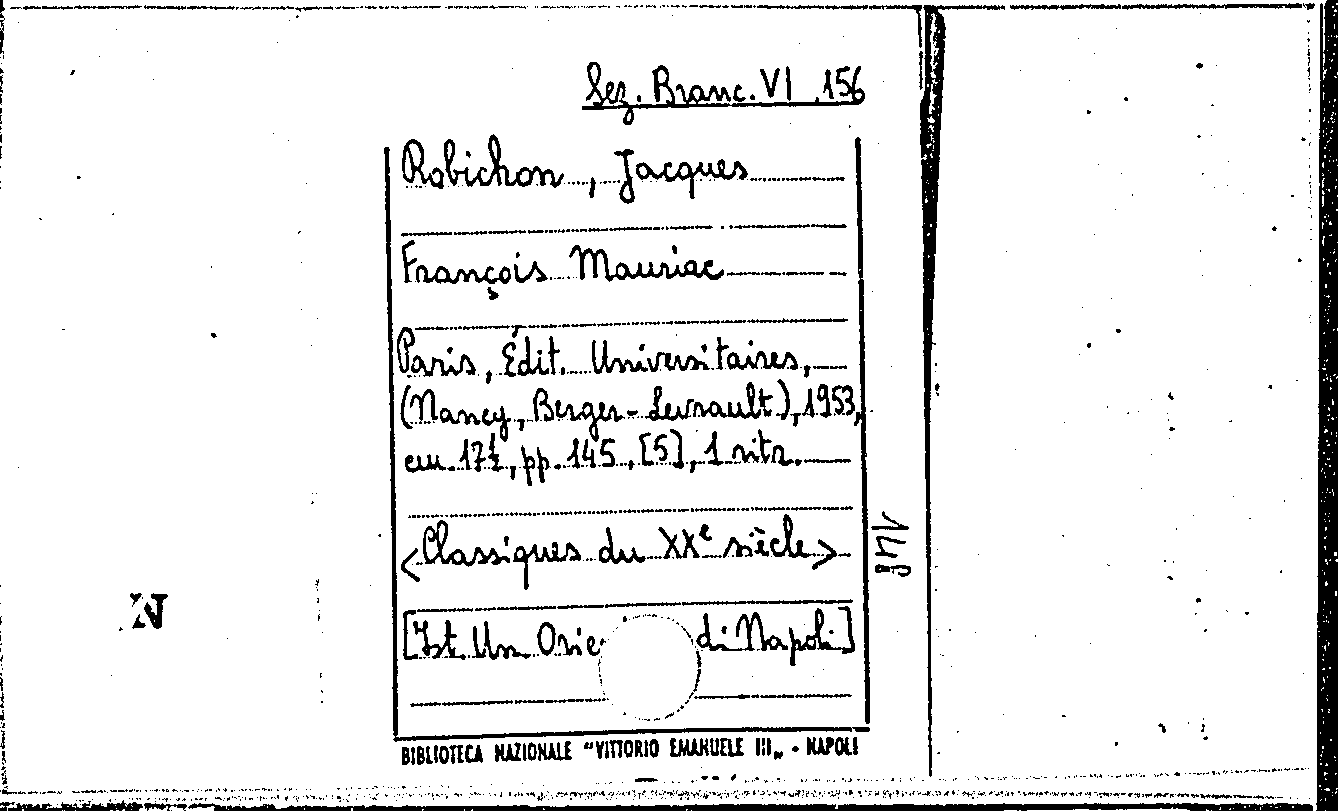 Sez. Branc. VI 156
Robichon, Jacques
François Mauriac
Paris, Édit. Universitaires,
(Nancy, Berger-Levrault), 1953,
cm. 17½, pp. 145, [5], 1 ritr.
<Classiques du XXe siècle>
[Ist. Un. Orie di Napoli]
BIBLIOTECA NAZIONALE "VITTORIO EMANUELE III„ - NAPOLI
N